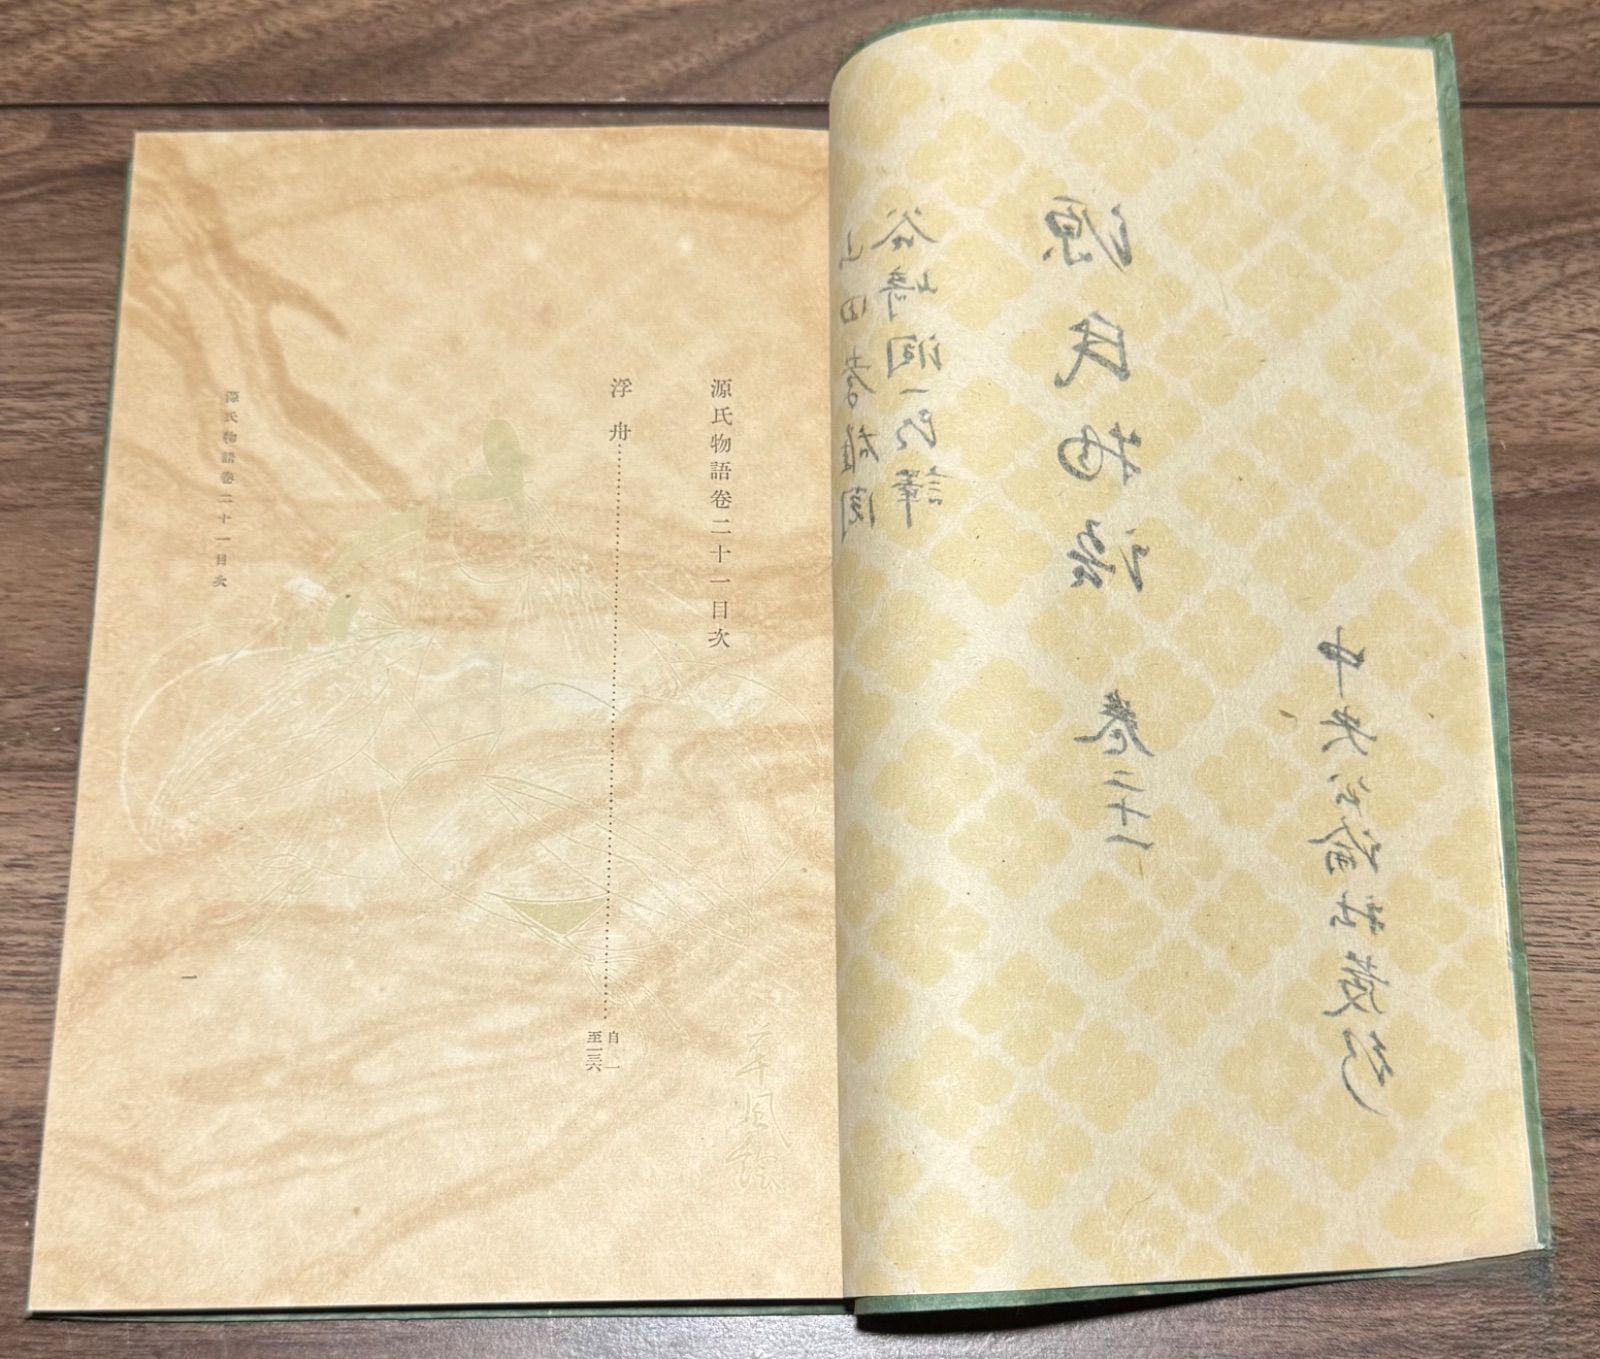 中央公論社發行
源氏物語 卷二十一
谷崎潤一郎譯
山田孝雄閲
源氏物語卷二十一目次
浮舟……………………………自一
至一三六
源氏物語卷二十一目次
一